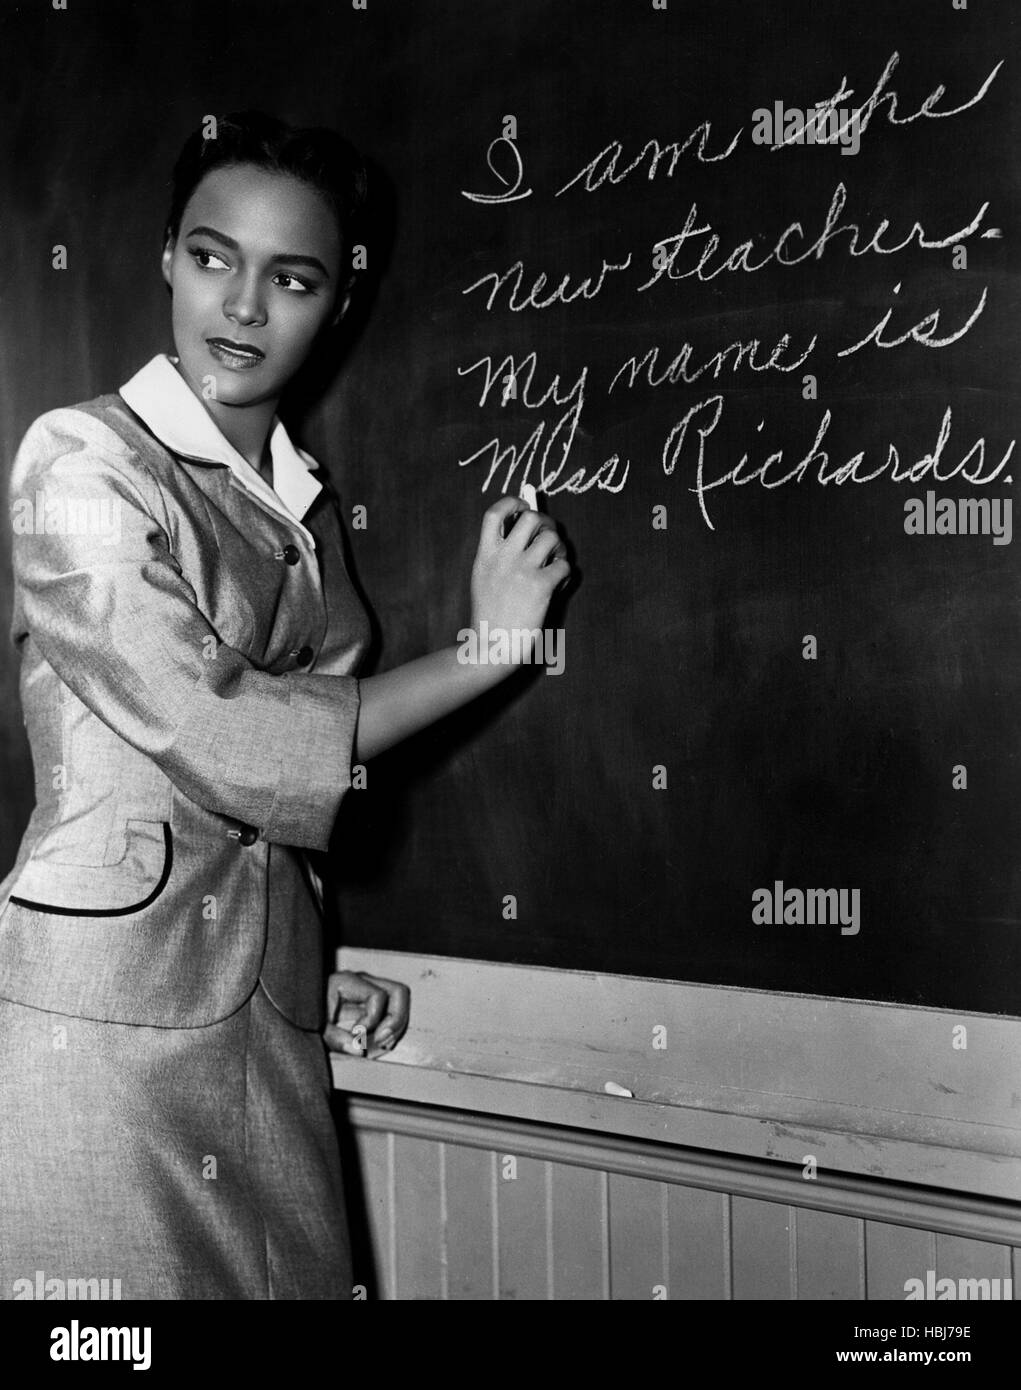 I am the
new teacher.
My name is
Miss Richards.
alamy
alamy
alamy
alamy
alamy
alamy
a
a
a
a
alamy
Image ID: HBJ79E
www.alamy.com